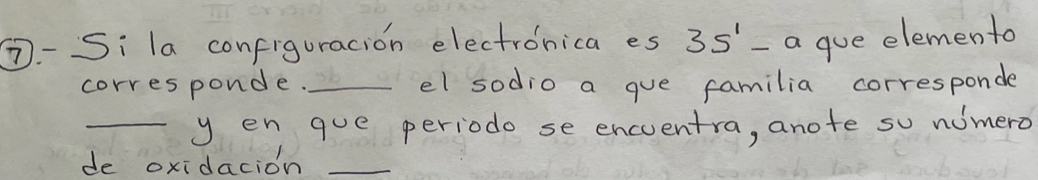 7.- Si la configuración electrónica es 3S¹ - a que elemento
corresponde. ____ el sodio a que familia corresponde
____ y en que periodo se encuentra, anote su número
de oxidación ____